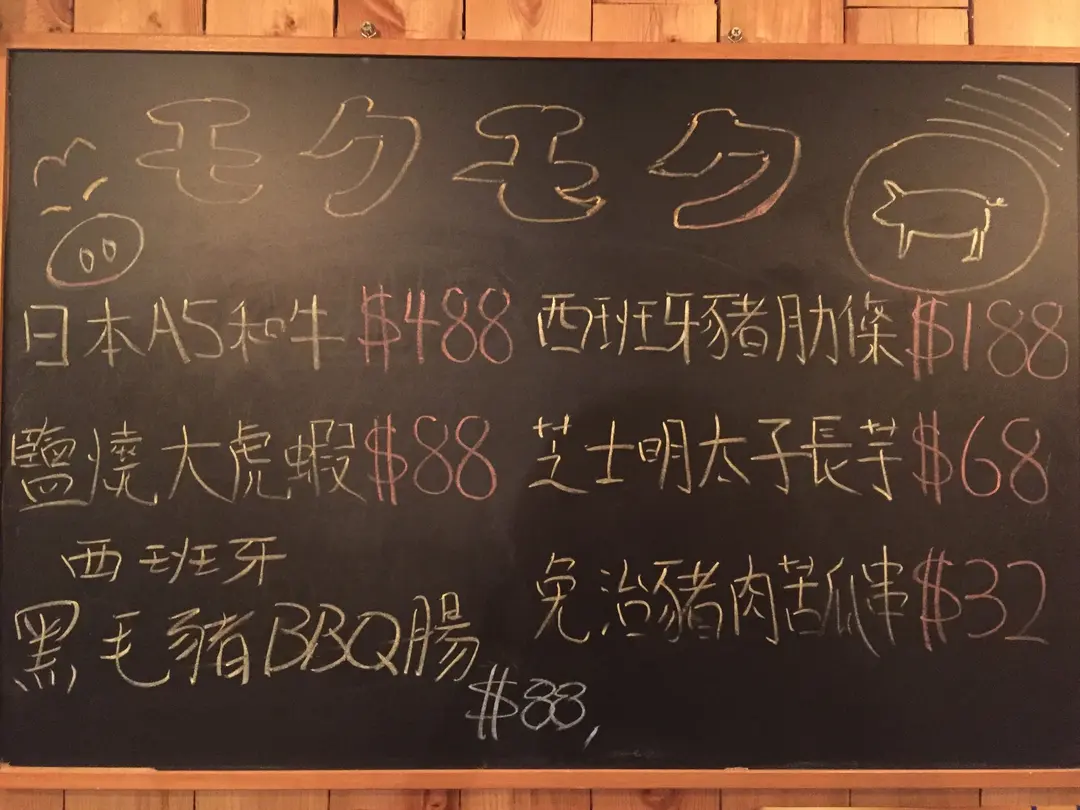 モクモク
日本A5和牛 $488
西班牙豬肋條 $188
鹽燒大虎蝦 $88
芝士明太子長芋 $68
西班牙
黑毛豬BBQ腸
$88,
免治豬肉苦瓜串 $32